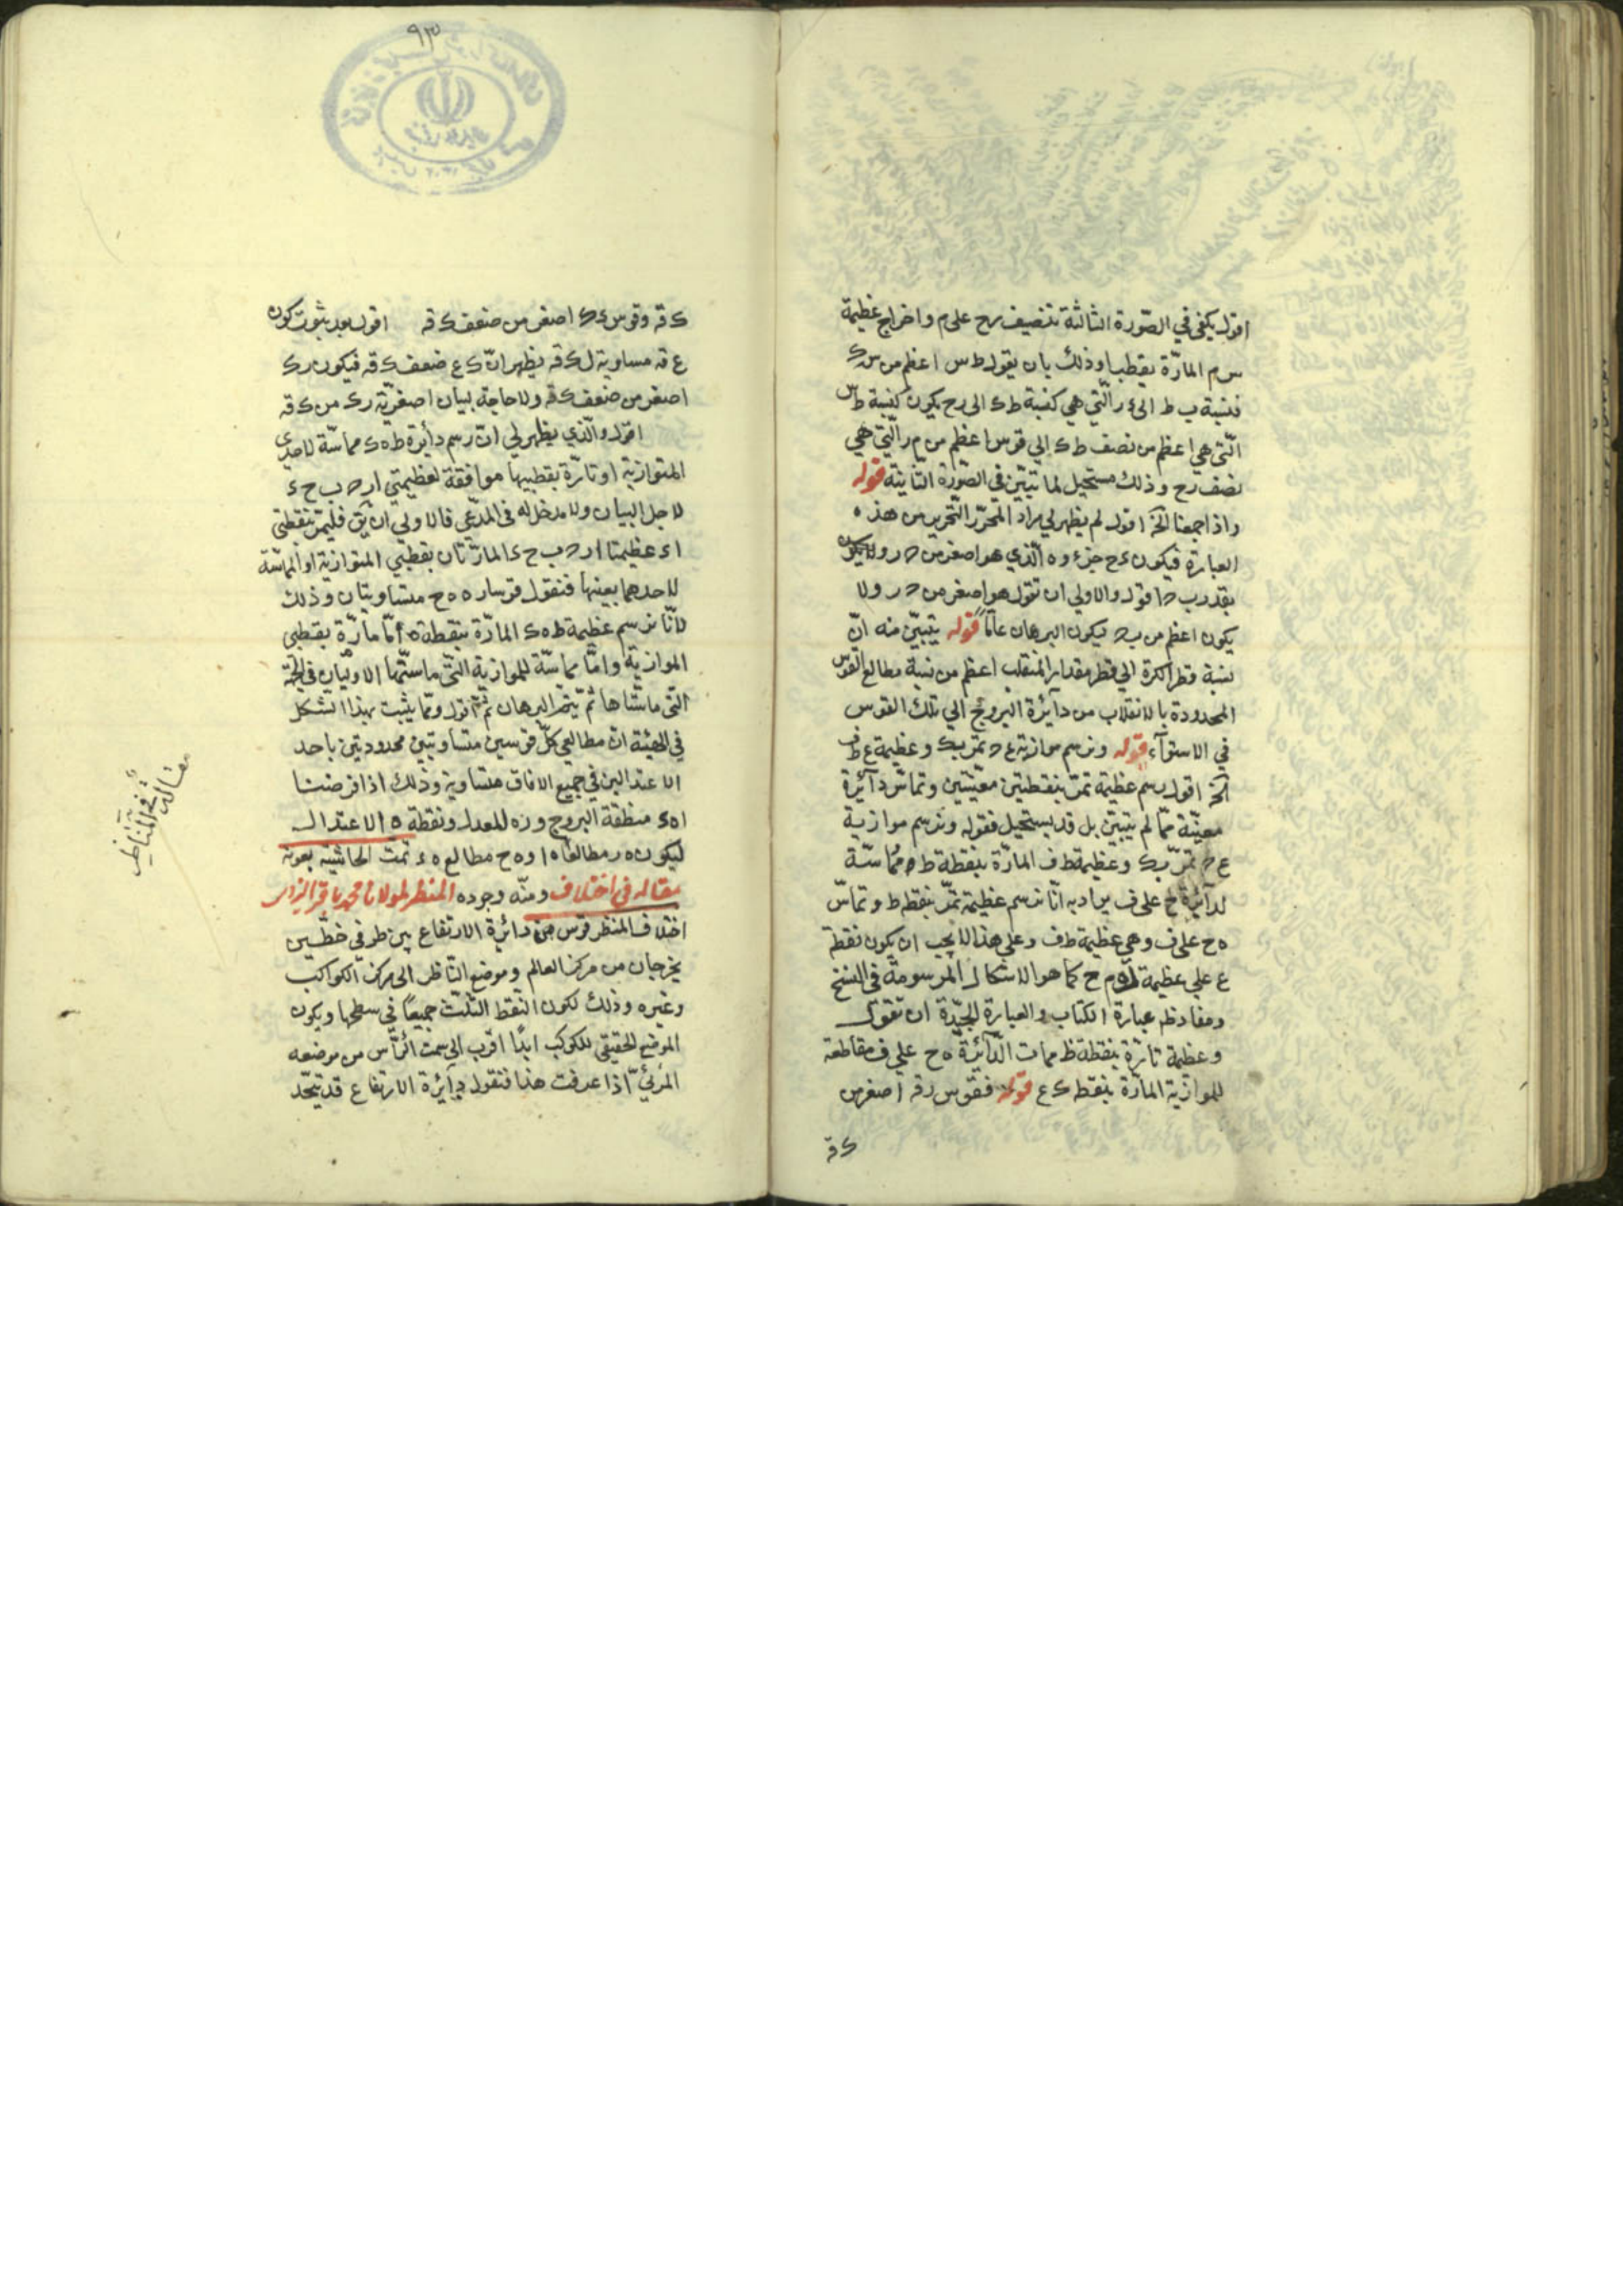 اقول يكفي في الصّورة الثالثة تنصيف رح على م واخراج عظيمة
س م المارّة بقطبها وذلك بان يقول ط س اعظم من س ك
فنسبة ب ط الى ء ر الّتي هي كنسبة ط ك الى رح يكون كنسبة ط س
الّتي هي اعظم من نصف ط ك الى قوس اعظم من م ر الّتي هي
نصف رح وذلك مستحيل لما تبيّن في الصّورة الثانية قوله
واذا جمعنا الخ اقول لم يظهر لي مراد المحرّر التحرير من هذه
العبارة فيكون ء ح جزء و ه الّذي هو اصغر من ح ر ولا يكون
بقدر ب ح اقول والاولى ان تقول هو اصغر من ح ر ولا
يكون اعظم من ب ح ليكون البرهان عامّاً قوله يتبيّن منه انّ
نسبة قطر الكرة الى قطر مقدار المنقلب اعظم من نسبة مطالع القوس
المحدودة بالانقلاب من دآئرة البروج الى تلك القوس
في الاستوآء قوله ونرسم موازية ع ح تمرّ بك وعظيمة ع ط ف
الخ اقول رسم عظيمة تمرّ بنقطتين معيّنتين وتماسّ دآئرة
معيّنة ممّا لم يتبيّن بل قد يستحيل فقوله ونرسم موازية
ع ح تمرّ بك وعظيمة ط ف المارّة بنقطة ط مماسّة
لدآئرة ح على ف يراد به انّا نرسم عظيمة تمرّ بنقطه ط وتماسّ
ه ح على ف وهي عظيمة ط ف وعلى هذا لا يجب ان يكون نقطة
ع على عظيمة ل م ح كما هو الاشكال المرسومة في النسخ
ومفاد ظ عبارة الكتاب والعبارة الجيّدة ان تقول
وعظيمة تارّة بنقطة ظ مماست الدّآئرة ه ح على ف مقاطعة
للموازية المارّة بنقط ك ع قوله فقوس رقه اصغر من
ك قه
٩٣
ك قه وقوس ء ك اصغر من ضعف ك قه اقول بعد ثبوت كون
ع قه مساوية ل ك قه يظهر انّ ك ع ضعف ك قه فيكون ر ك
اصغر من ضعف ك قه ولا حاجة لبيان اصغريّة ر ك من ك قه
اقول والّذي يظهر لي انّ رسم دأيرة ط ه ك مماسّة لاحدى
المتوازية او تارّة بقطبيها موافقة لعظيمتي ا ر ح ب ح ء
لاجل البيان ولا مدخل له في المدّعى فالاولى ان يق فليمرّ بنقطتي
ا ء عظيمتا ا ر ح ب ح ء المارّتان بقطبي المتوازية او المماسّة
لاحدهما بعينها فنقول قوسا ر ه ه ح متساويتان وذلك
لانّا نرسم عظيمة ط ه ك المارّة بنقطة ه امّا مارّة بقطبي
الموازية وامّا مماسّة للموازية الّتي ماستّها الاوليان في الجهة
الّتي ماسّتاها ثمّ يتمّ البرهان ثمّ اقول وممّا يثبت بهذا الشكل
في الهيئة انّ مطالعي كلّ قوسين متساويتين محدودتين باحد
الاعتدالين في جميع الافاق متساوية وذلك اذا فرضنا
ا ه ء منطقة البروج و ر ه للمعدل ونقطة ه الاعتدال
ليكون ه ر مطالعا ه ا و ه ح مطالع ه ء تمت الحاشية بعونه
ومنّه وجوده مقاله في اختلاف المنظر لمولانا محمد باقر اليزدي
اختلاف المنظر قوس من دائرة الارتفاع بين طرفي خطّين
يخرجان من مركز العالم وموضع النّاظر الى مركز الكواكب
وغيره وذلك لكون النقط الثلث جميعاً في سطحها ويكون
الموضع الحقيقي للكوكب ابداً اقرب الى سمت الرّأس من موضعه
المرئيّ اذا عرفت هذا فنقول دآئرة الارتفاع قد تتّحد